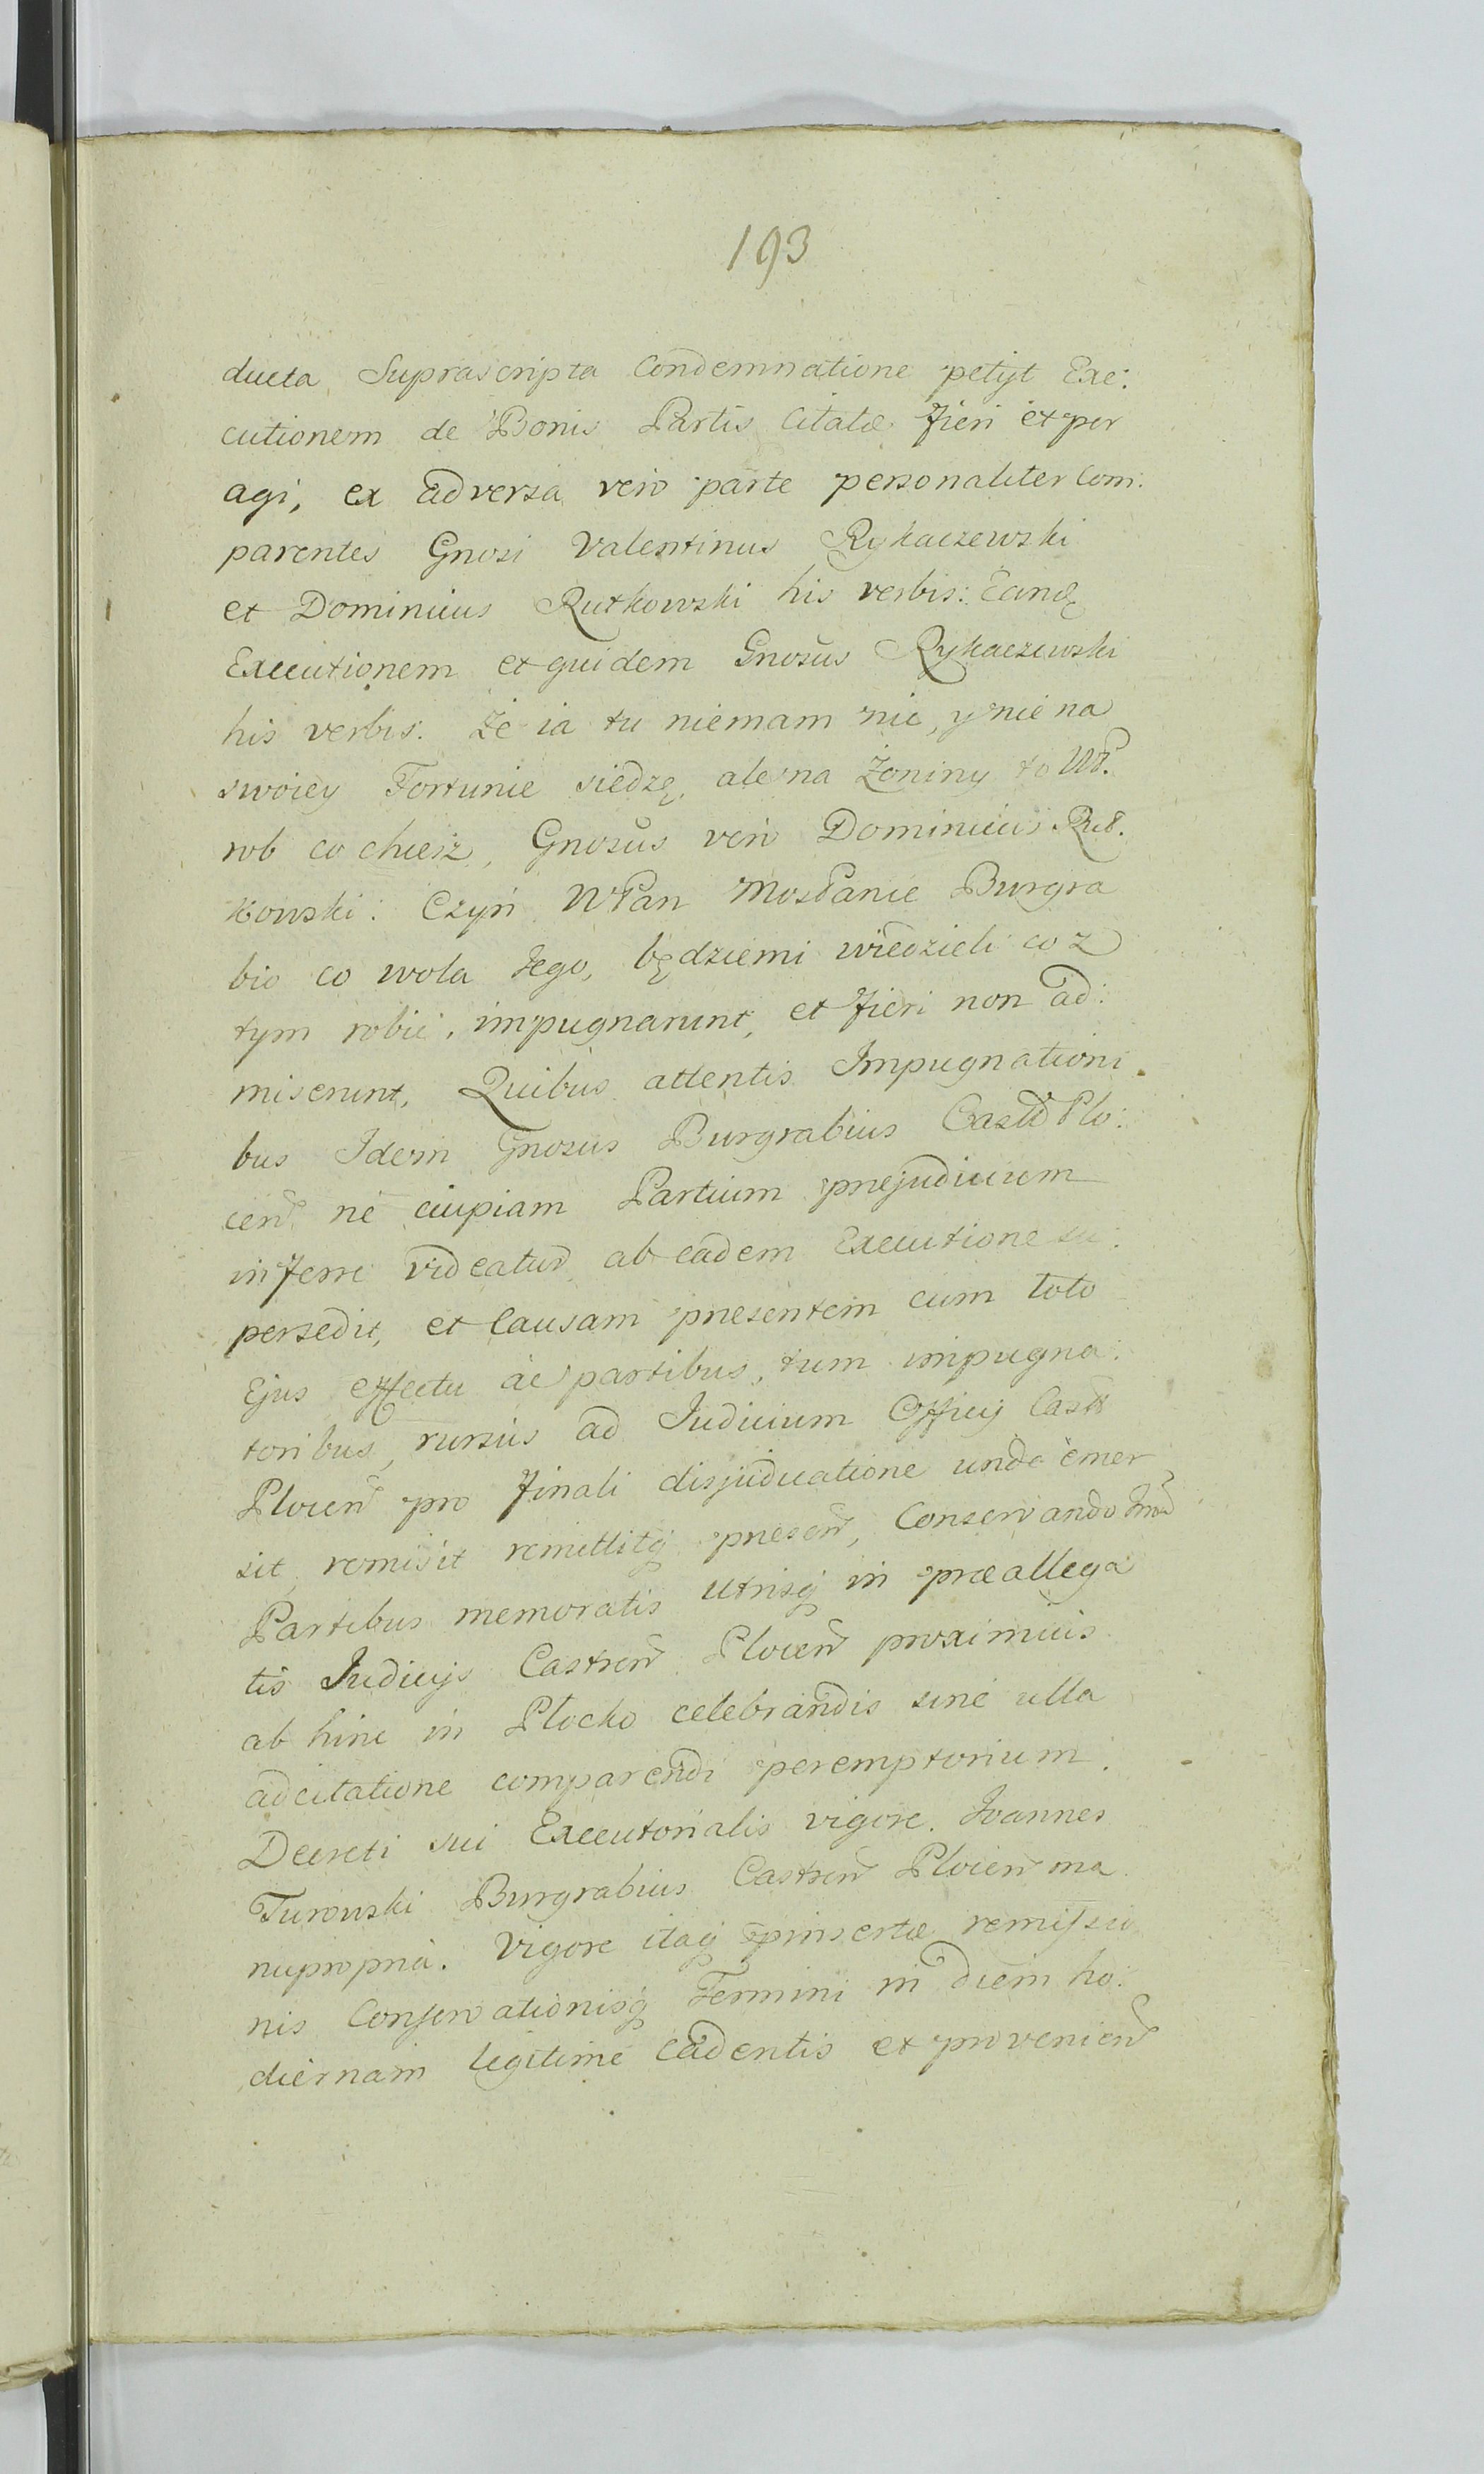 193
ducta Suprascripta Condemnatione petyt Exe:
cutionem de Bonis Partis Citatæ fieri et per
agi, ex adversa vero parte personaliter Com:
parentes Gnosi Valentinus Rykaczewski
et Dominicus Rutkowski his verbis: Eand
Executionem et quidem Gnosus Rykaczewski
his verbis. Że ia tu niemam nic, y nie na
swoiey Fortunie siedzę, ale na Żoniny to WP.
rob co chcesz, Gnosus vero Dominicus Rut.
kowski: Czyń WPan MosPanie Burgra
bio co wola Jego, będziemi wiedzieli co z
tym robić, impugnarunt, et fieri non ad:
miserunt, Quibus attentis Impugnationi.
bus Idem Gnosus Burgrabius Castr Plo:
cen ne cuipiam Partium prejudicium
inferre videatur ab eadem Executione su:
persedit, et Causam presentem cum toto
Ejus effectu ac partibus, tum impugna:
toribus, rursus ad Judicium Officij Castr
Plocen pro finali disjudicatione unde emer
sit, remisit remittitq presen, Conservando
Partibus memoratis utrisq in præallega
tis Judicijs Castren Plocen proximius
ab hinc in Plocko celebrandis sine ulla
adcitatione comparendi peremptorium.
Decreti sui Executorialis vigore. Joannes
Turowski Burgrabius Castren Plocen ma
nupropria. Vigore itaq prinsertæ remissio
nis Conservationisq Termini in diem ho:
diernam legitime cadentis et provenien